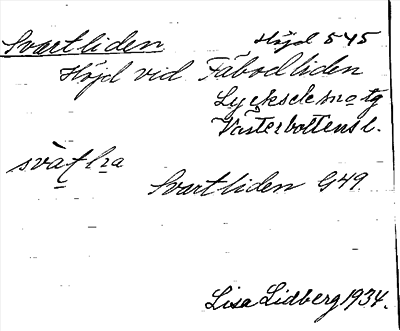 Svartliden Höjd 545
Höjd vid Fäbodliden
Lycksele
Västerbottens l.
Svartliden G49
Lisa Lidberg 1934.